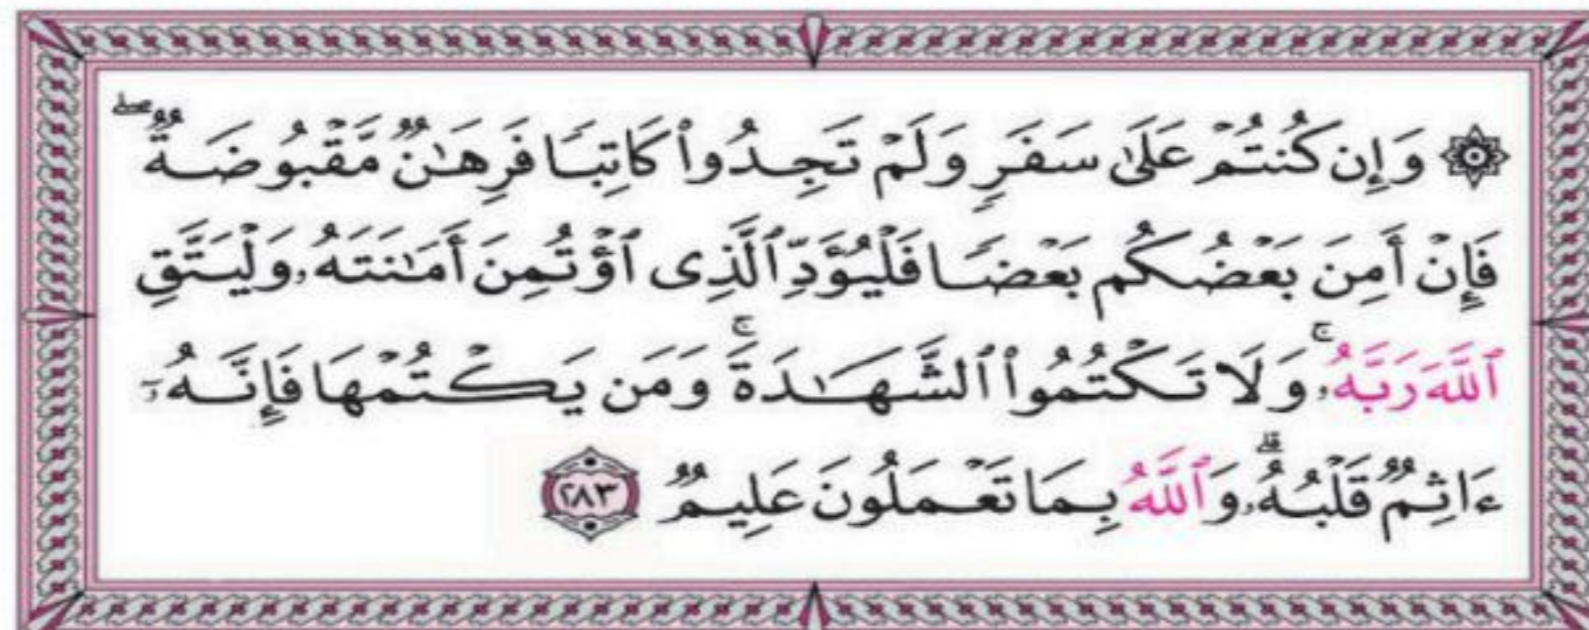 ۞ وَإِن كُنتُمْ عَلَىٰ سَفَرٍ وَلَمْ تَجِدُوا۟ كَاتِبًا فَرِهَـٰنٌ مَّقْبُوضَةٌ ۖ
فَإِنْ أَمِنَ بَعْضُكُم بَعْضًا فَلْيُؤَدِّ ٱلَّذِى ٱؤْتُمِنَ أَمَـٰنَتَهُۥ وَلْيَتَّقِ
ٱللَّهَ رَبَّهُۥ ۚ وَلَا تَكْتُمُوا۟ ٱلشَّهَـٰدَةَ ۚ وَمَن يَكْتُمْهَا فَإِنَّهُۥٓ
ءَاثِمٌ قَلْبُهُۥ ۗ وَٱللَّهُ بِمَا تَعْمَلُونَ عَلِيمٌ ٢٨٣